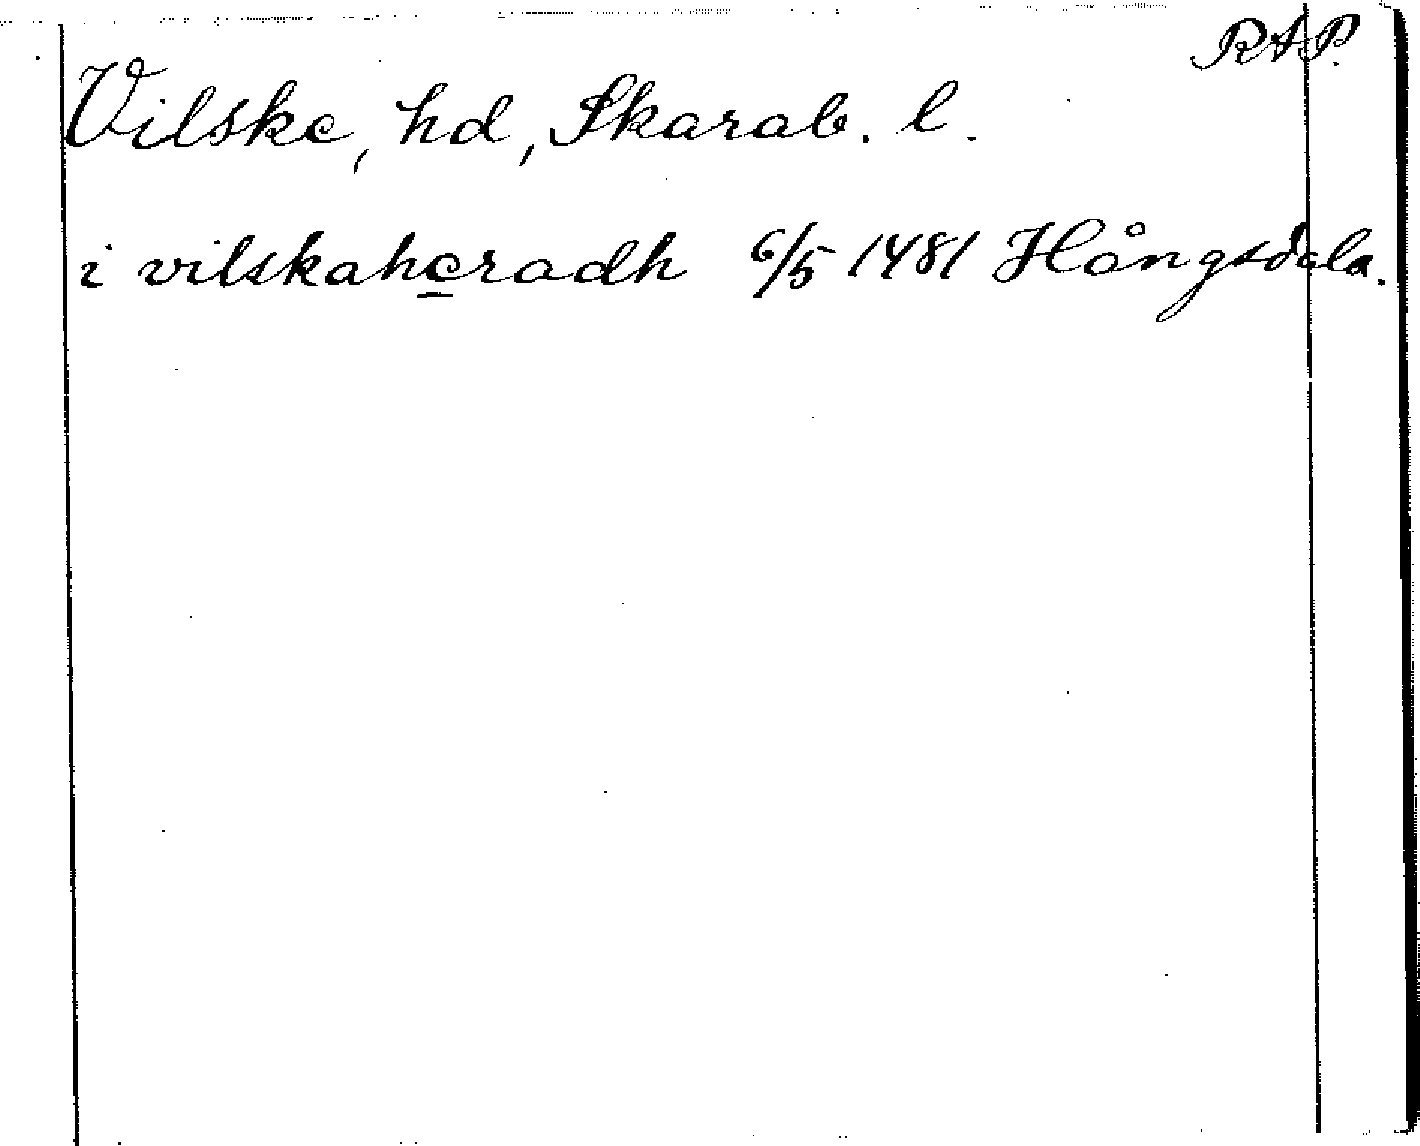 RAP.
Vilske, hd, Skarab. l.
i vilskaheradh 6/5 1481 Hångsdala.